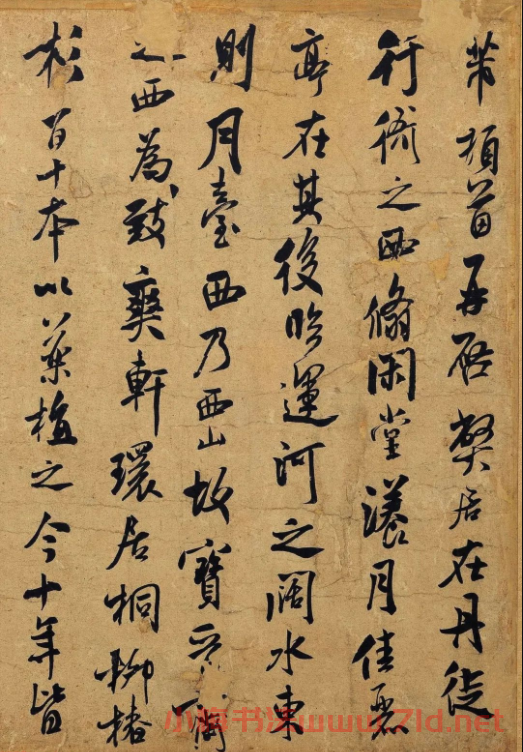 芾頓首再啟弊居在丹徒
行衙之西翛閑堂漾月佳麗
亭在其後臨運河之闊水東
則月臺西乃西山故寶晉齋
之西為致爽軒環居桐柳椿
杉百十本以藥植之今十年皆
书法www.7ld.net